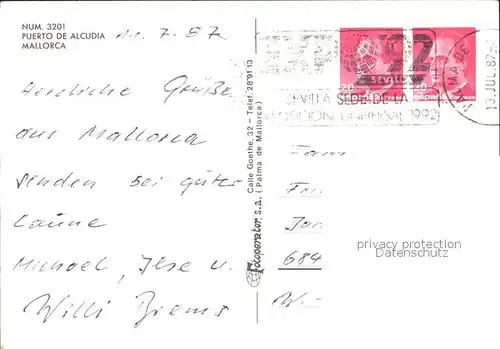 NUM. 3201
PUERTO DE ALCUDIA
MALLORCA
11.7.87
Herzliche Grüße
aus Mallorca
senden bei guter
Laune
Michael, Ilse u.
Willi Biems
Calle Goethe, 32 - Telef. 289113
(Palma de Mallorca)
Fotoperator s.a.
92
SEVILLA
SEVILLA SEDE DE LA
EXPOSICION UNIVERSAL 1992
20
20
PALMA DE
13 JUL 87
Fam.
684
W.
privacy protection
Datenschutz